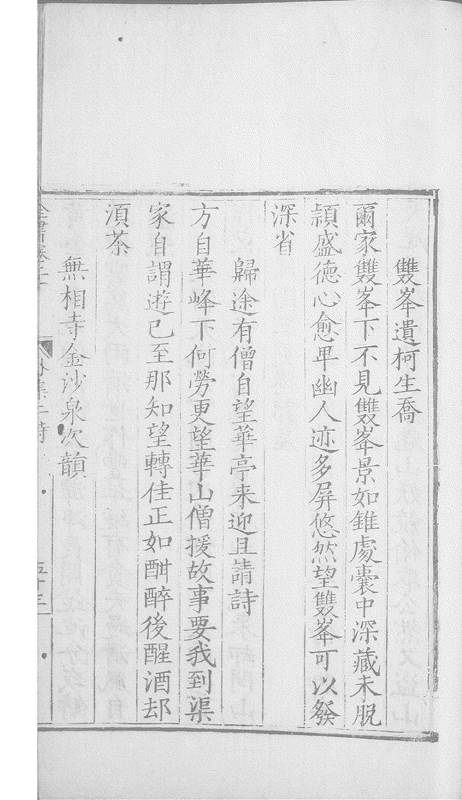 雙峯遺柯生喬
爾家雙峯下不見雙峯景如錐處囊中深藏未脫
穎盛德心愈卑幽人迹多屏悠然望雙峯可以發
深省
歸途有僧自望華亭來迎且請詩
方自華峰下何勞更望華山僧援故事要我到渠
家自謂遊已至那知望轉佳正如酣醉後醒酒却
須茶
無相寺金沙泉次韻
全書卷二十 外集二詩 五十三